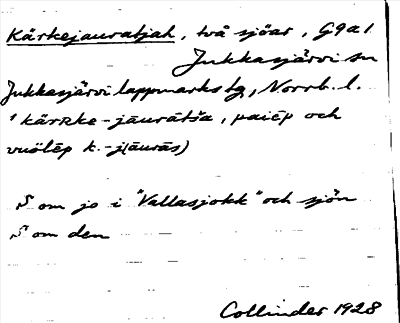 Kärkejauratjah, två sjöar, G9a1
Jukkasjärvi sn
Jukkasjärvi lappmarks tg, Norrb. l.
'kärrke-jaurātša, paiēp och
vuölēp k.-j(aurās)
S om jo i "Vallasjokk" och sjön
S om den
Collinder 1928